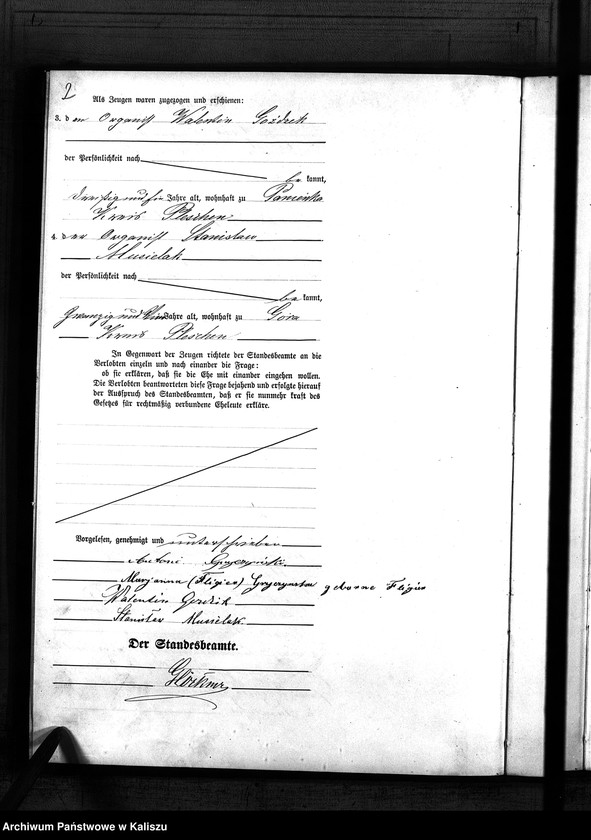 2
Als Zeugen waren zugezogen und erschienen:
3. den Organist Walentin
der Persönlichkeit nach
bekannt,
dreißig und Jahre alt, wohnhaft zu Panienka
Kreis Pleschen
4. der Organist Stanislaw
Musielak
der Persönlichkeit nach
bekannt,
Jahre alt, wohnhaft zu Góra
Kreis Pleschen
In Gegenwart der Zeugen richtete der Standesbeamte an die
Verlobten einzeln und nach einander die Frage:
ob sie erklären, daß sie die Ehe mit einander eingehen wollen.
Die Verlobten beantworteten diese Frage bejahend und erfolgte hierauf
der Ausspruch des Standesbeamten, daß er sie nunmehr kraft des
Gesetzes für rechtmäßig verbundene Eheleute erkläre.
Vorgelesen, genehmigt und unterschrieben
Antoni
Maryanna (Fligier) geborne Fligier
Walentin
Stanisław Musielak
Der Standesbeamte.
Archiwum Państwowe w Kaliszu